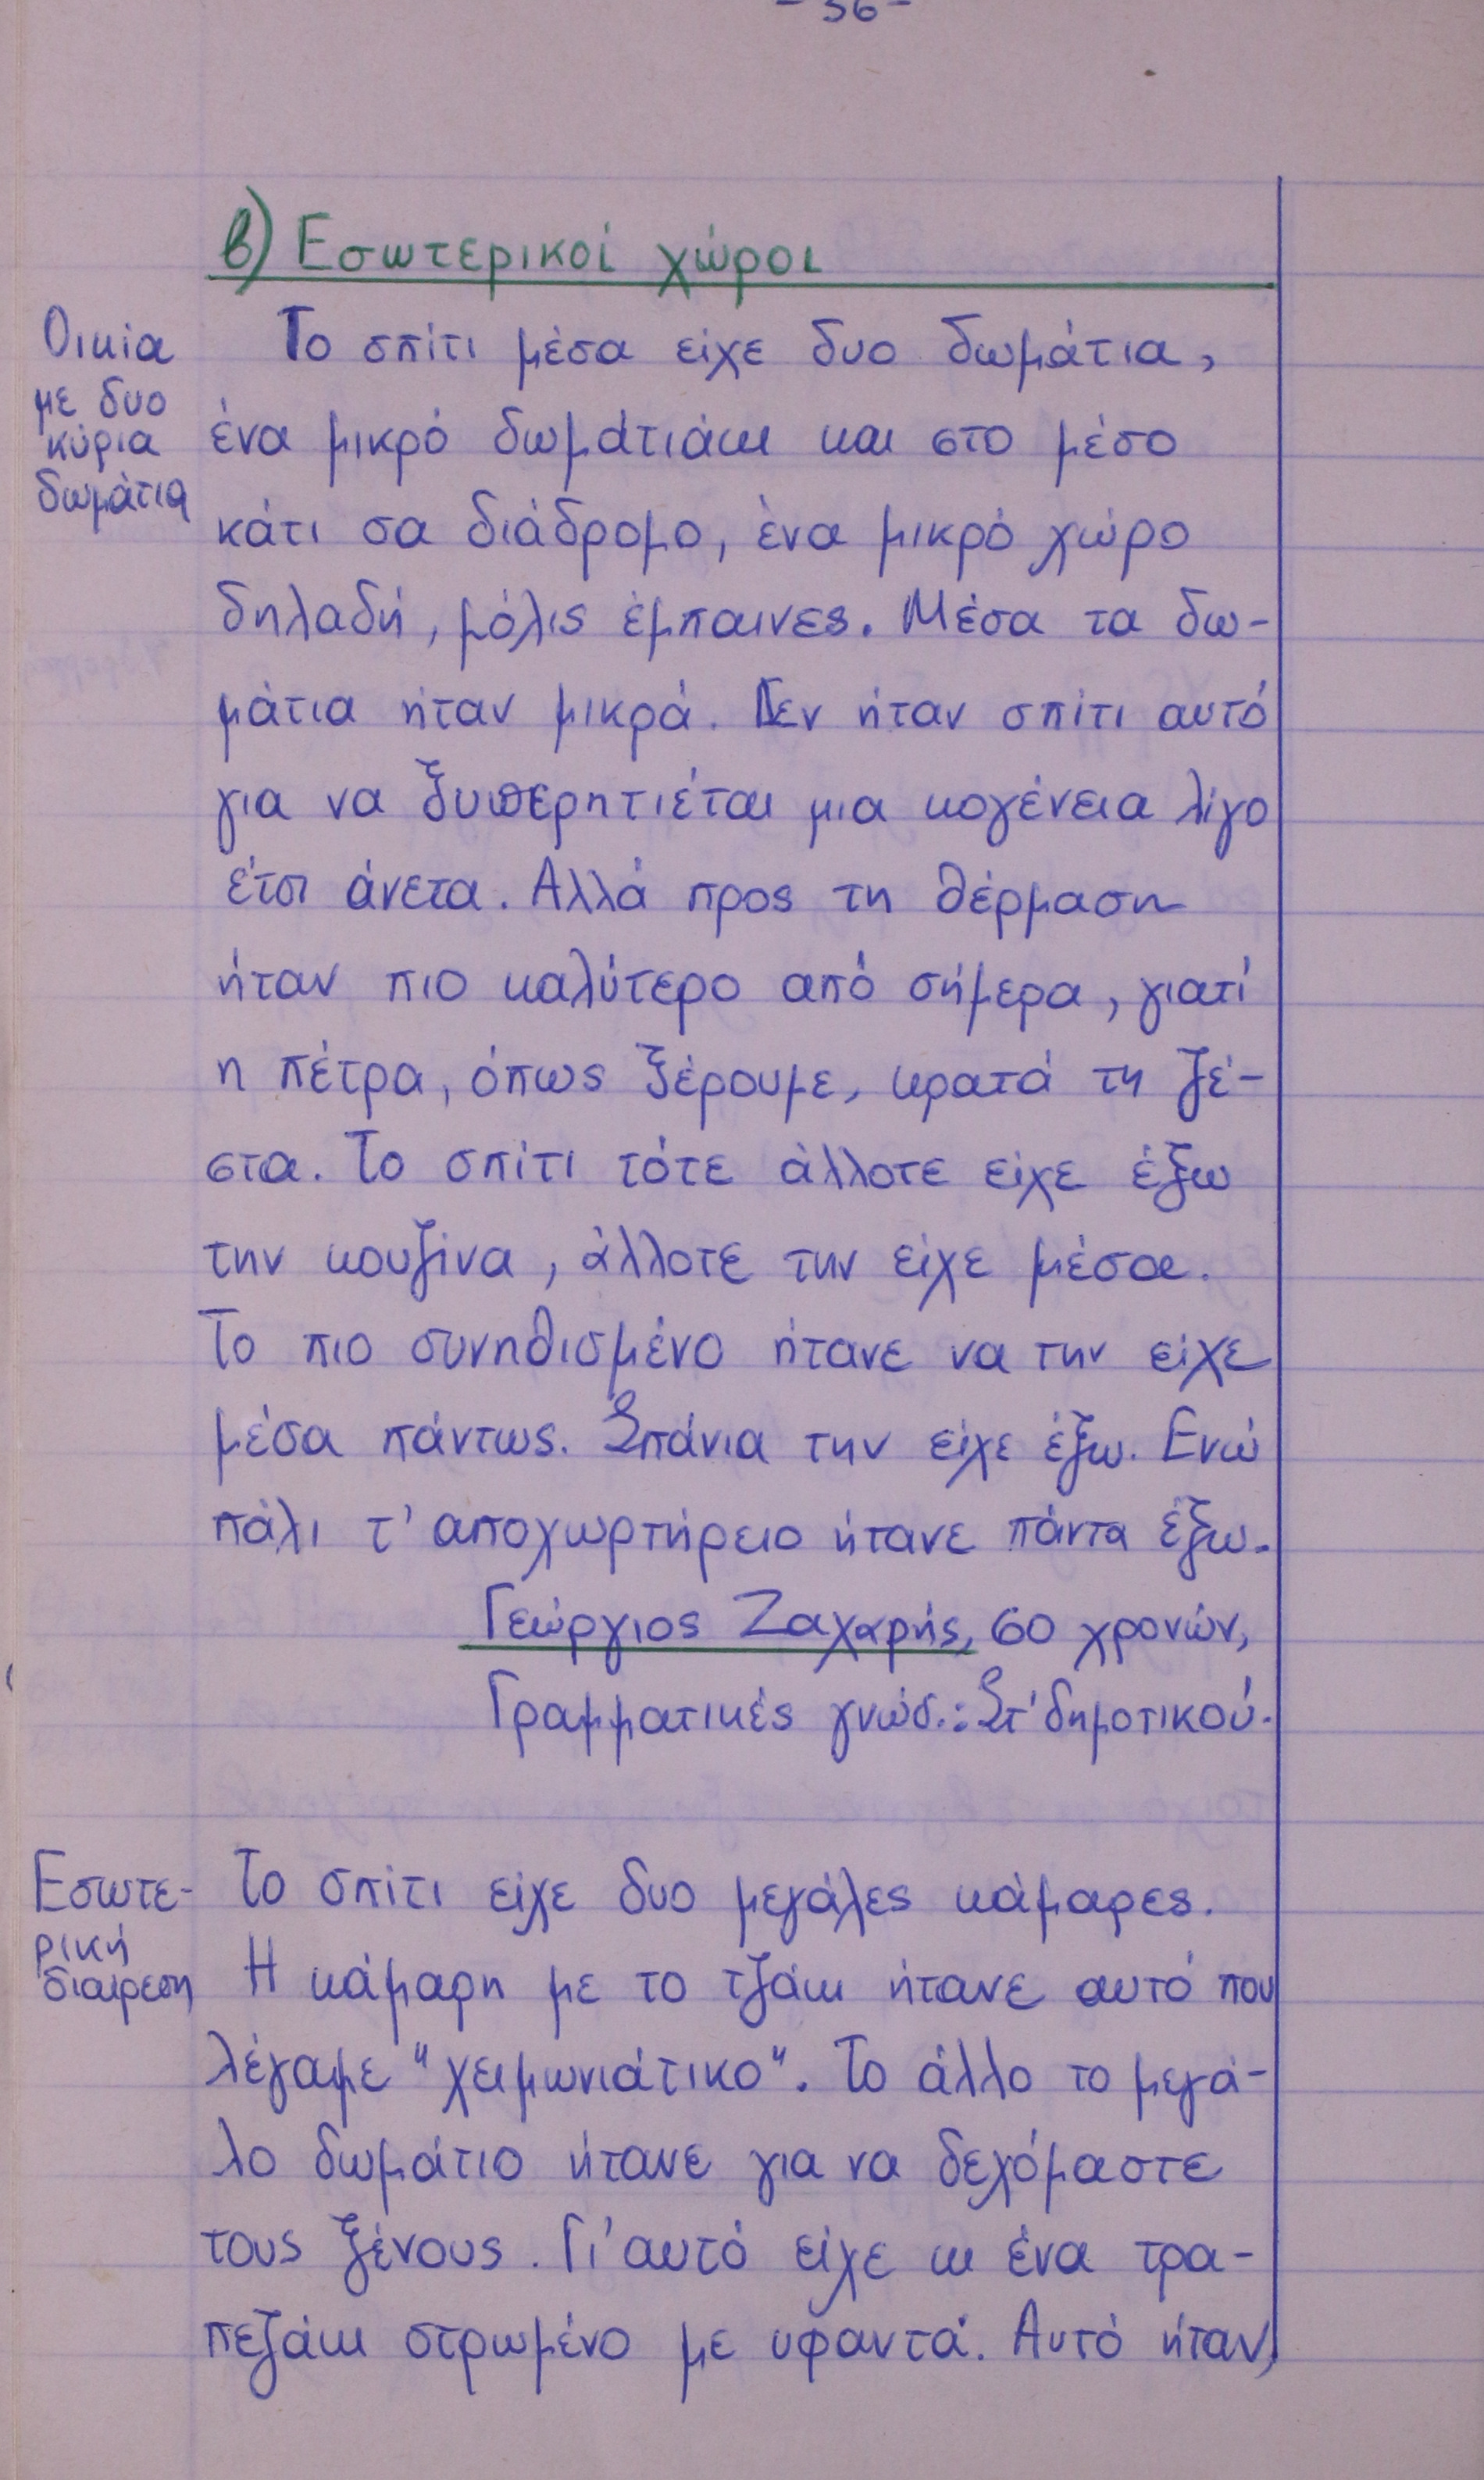 - 36 -
β) Εσωτερικοί χώροι
Οικία
με δυο
κύρια
δωμάτια
Το σπίτι μέσα είχε δυο δωμάτια,
ένα μικρό δωματιάκι και στο μέσο
κάτι σα διάδρομο, ένα μικρό χώρο
δηλαδή, μόλις έμπαινες. Μέσα τα δω-
μάτια ήταν μικρά. Δεν ήταν σπίτι αυτό
για να ξυπερητιέται μια κογένεια λίγο
έτσι άνετα. Αλλά προς τη θέρμαση
ήταν πιο καλύτερο από σήμερα, γιατί
η πέτρα, όπως ξέρουμε, κρατά τη ζέ-
στα. Το σπίτι τότε άλλοτε είχε έξω
την κουζίνα, άλλοτε την είχε μέσα.
Το πιο συνηθισμένο ήτανε να την είχε
μέσα πάντως. Σπάνια την είχε έξω. Ενώ
πάλι τ' αποχωρτήρειο ήτανε πάντα έξω.
Γεώργιος Ζαχαρής, 60 χρονών,
Γραμματικές γνώσ.: Στ' δημοτικού.
Εσωτε-
ρική
διαίρεση
Το σπίτι είχε δυο μεγάλες κάμαρες.
Η κάμαρη με το τζάκι ήτανε αυτό που
λέγαμε "χειμωνιάτικο". Το άλλο το μεγά-
λο δωμάτιο ήτανε για να δεχόμαστε
τους ξένους. Γι' αυτό είχε κι ένα τρα-
πεζάκι στρωμένο με υφαντά. Αυτό ήταν,